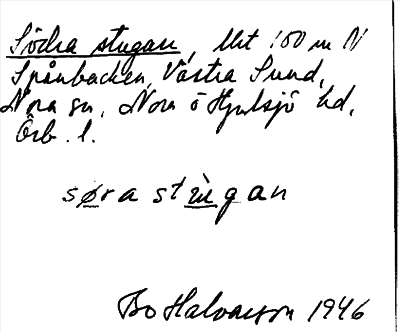 Södra stugan, Ubt 100 m N
Spånbacken, Västra Sund,
Nora sn, Nora o Hjulsjö hd,
Örb. l.
søra stùgan
Bo Halvarson 1946